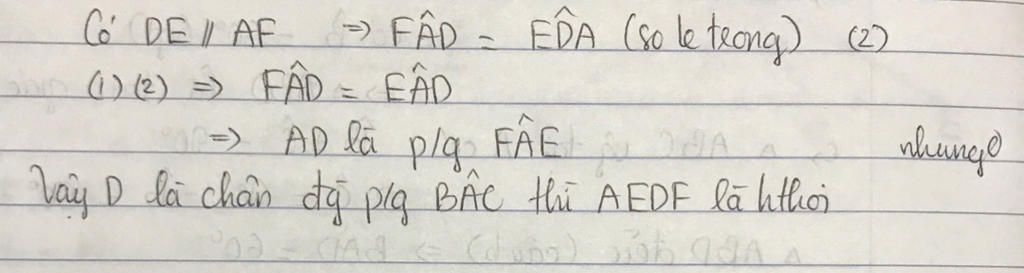 Có DE // AF ⇒ FÂD = ED̂A (so le trong) (2)
(1) (2) ⇒ FÂD = EÂD
⇒ AD là p/g FÂE nhung
Vậy D là chân đg p/g BÂC thì AEDF là hthoi